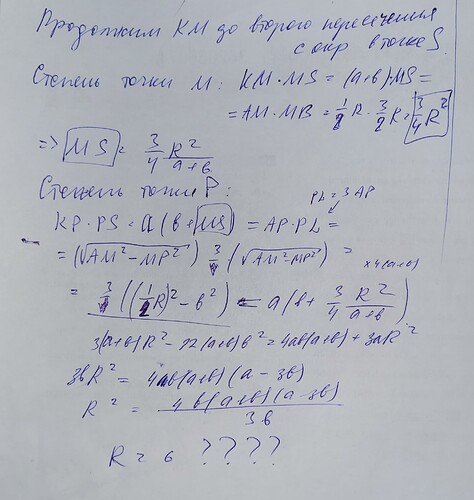 Продолжим KM до второго пересечения
с окр в точке S.
Степень точки M: KM·MS = (a+b)·MS =
= AM·MB = 1/2 R · 3/2 R = 3/4 R²
=> MS = 3/4 R²/(a+b)
Степень точки P:
PL = 3 AP
KP·PS = a(b+MS) = AP·PL =
= (√(AM²-MP²)) 3 (√(AM²-MP²)) =
x4(a+b)
= 3((1/2 R)² - b²) = a(b + 3/4 R²/(a+b))
3(a+b)R² - 12(a+b)b² = 4ab(a+b) + 3aR²
3bR² = 4b(a+b)(a-3b)
R² = 4b(a+b)(a-3b)/3b
R = 6 ????